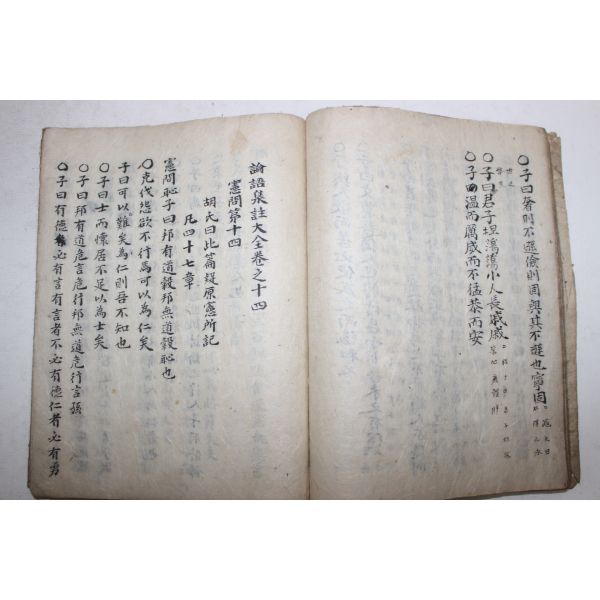 ○子曰奢則不遜儉則固與其不遜也寧固
○子曰君子坦蕩蕩小人長戚戚
○子溫而厲威而不猛恭而安
論語集註大全卷之十四
憲問第十四
胡氏曰此篇疑原憲所記
凡四十七章
憲問恥子曰邦有道穀邦無道穀恥也
○克伐怨欲不行焉可以為仁矣
子曰可以難矣為仁則吾不知也
○子曰士而懷居不足以為士矣
○子曰邦有道危言危行邦無道危行言孫
○子曰有德必有言有言者不必有德仁者必有勇